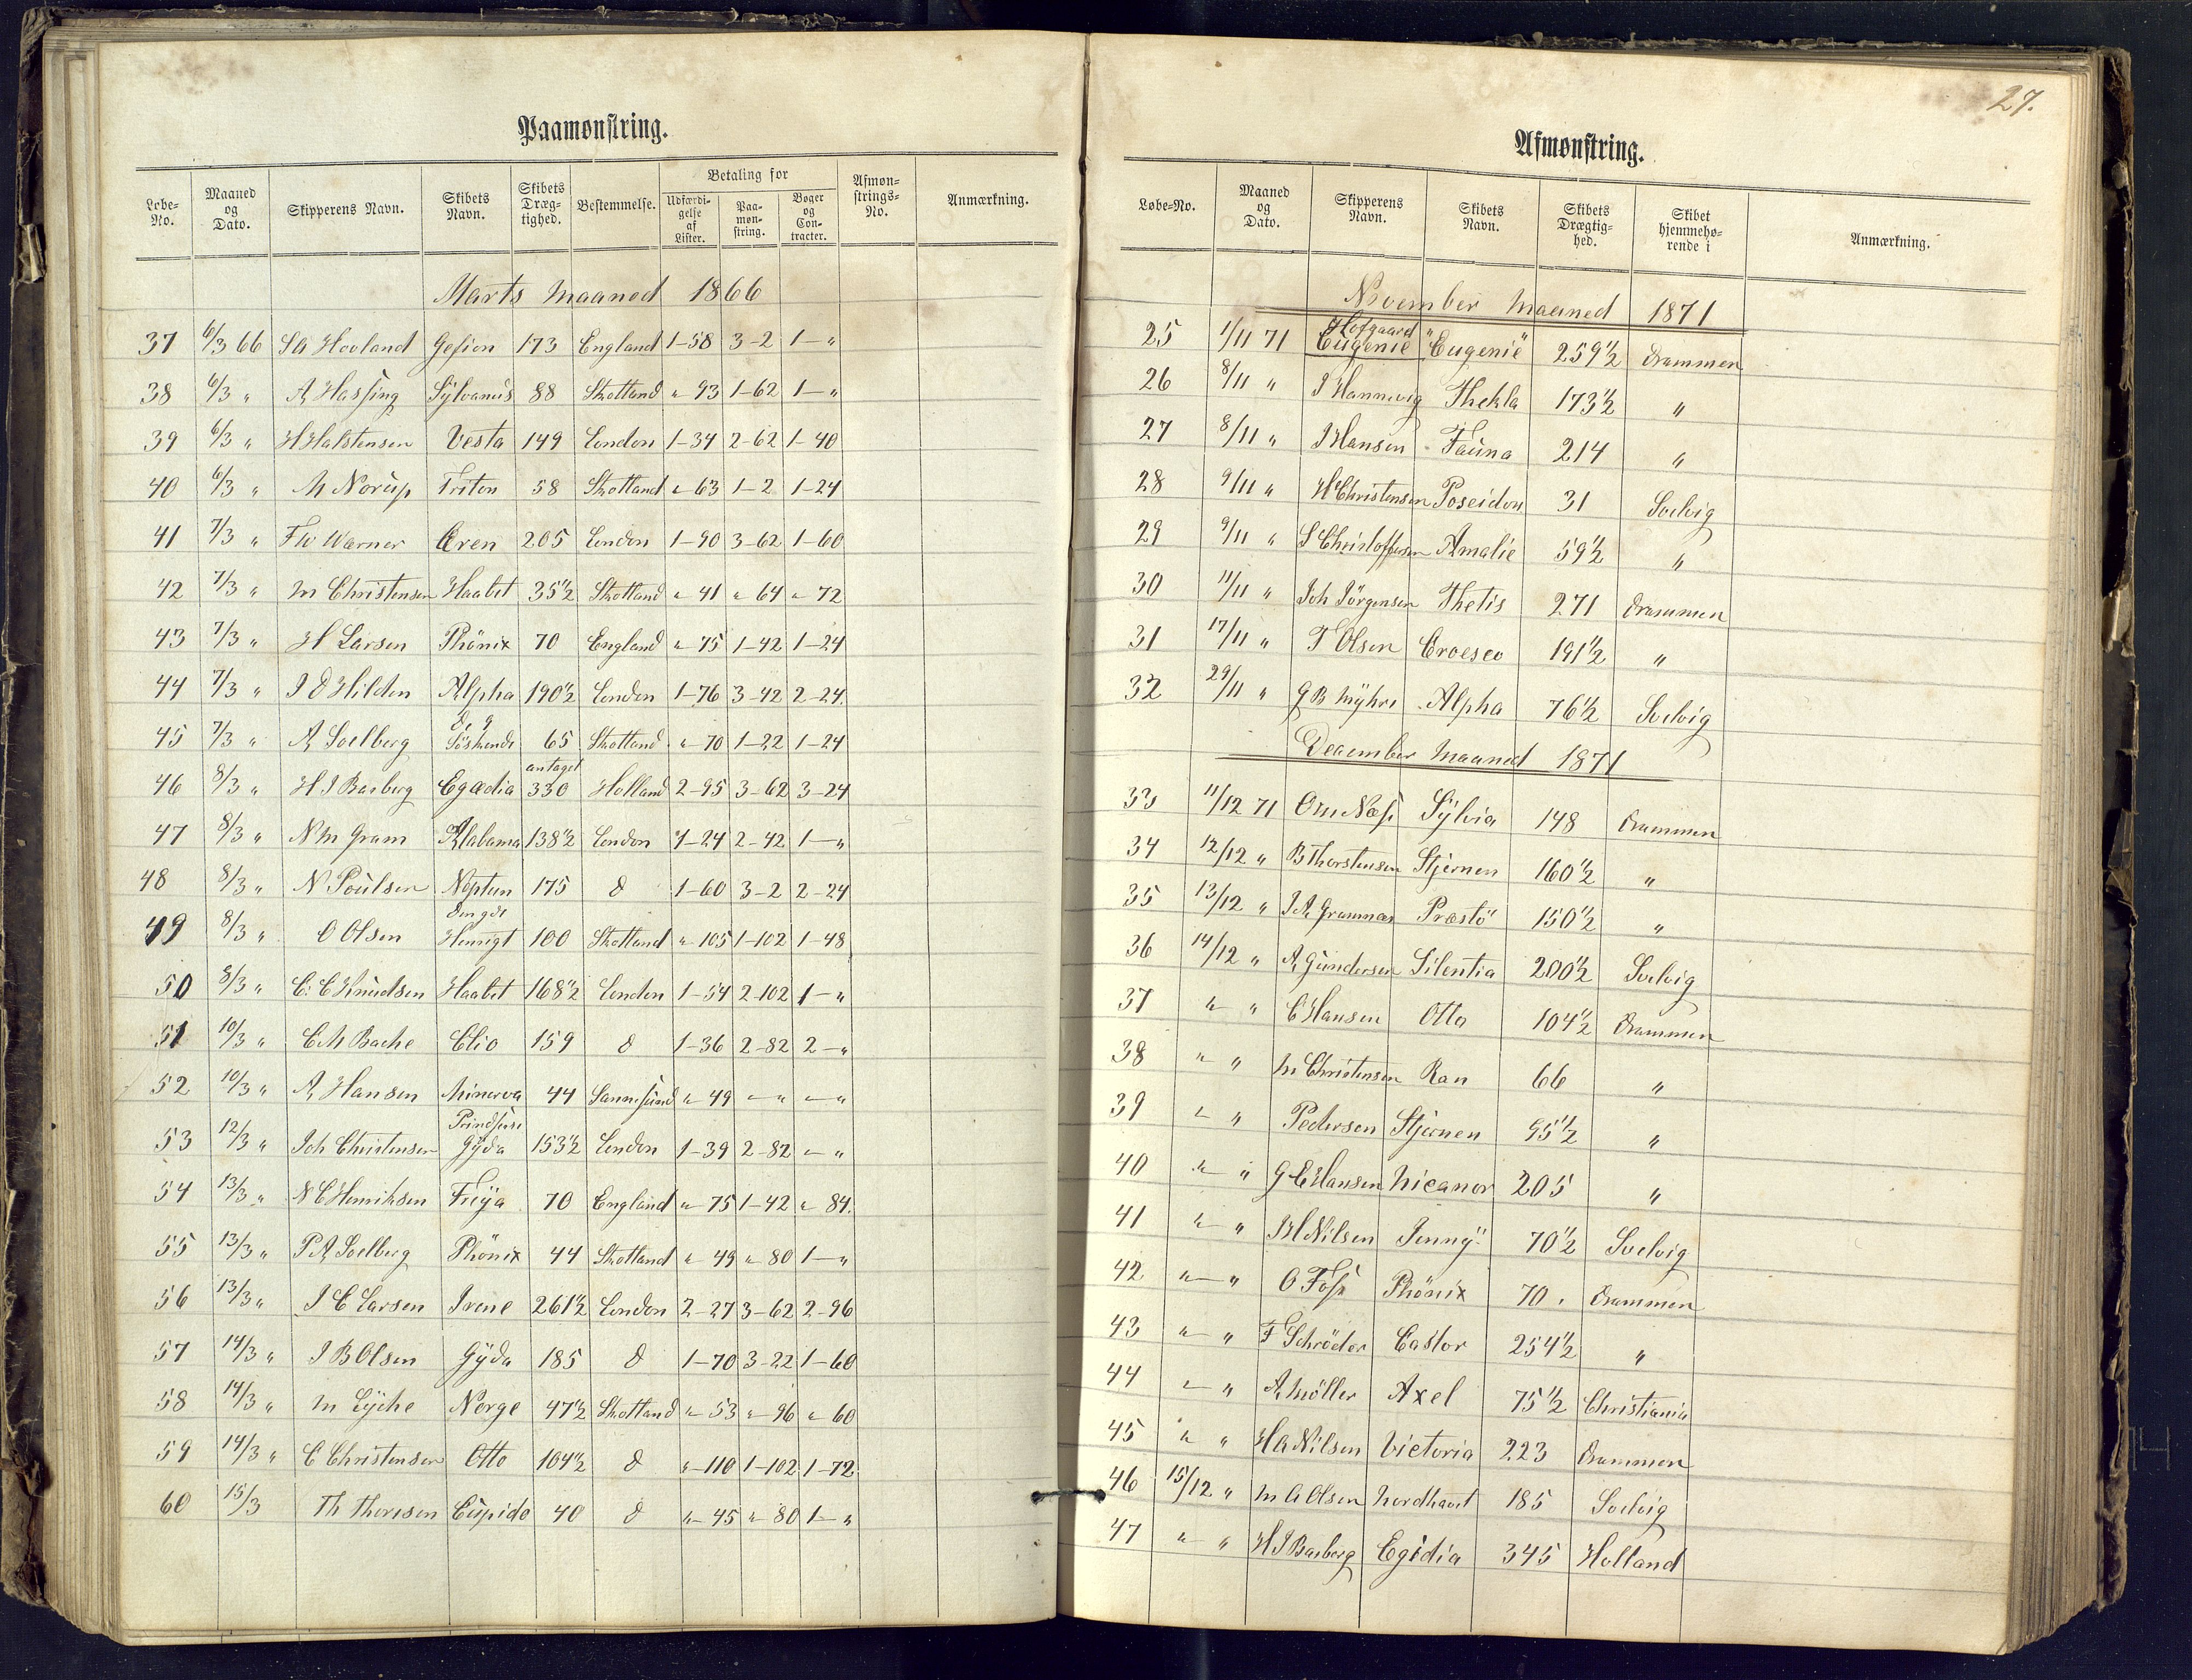 Paamønstring.
Løbe-No. | Maaned og Dato. | Skipperens Navn. | Skibets Navn. | Skibets Dræg-tighed. | Bestemmelse. | Betaling for | Udfærdi-gelse af Lister. | Paa-møn-string. | Bøger og Con-tracter. | Afmøn-strings-No. | Anmærkning.
Marts Maaned 1866
37 6/3 66 Hovland Gefion 173 England 1-58 3-2 1-"
38 6/3 " A Hassing Sylvanus 88 Skotland "-93 1-62 1-"
39 6/3 " H Halstensen Vesta 149 London 1-34 2-62 1-40
40 6/3 " M Norup Triton 58 Skotland "-63 1-2 1-24
41 7/3 " Fw Wærner Ceren 205 London 1-90 3-62 1-60
42 7/3 " M Christensen Haabet 35 1/2 Skotland "-41 "-64 "-72
43 7/3 " H Larsen Phönix 70 England "-75 1-42 1-24
44 7/3 " I D Hilden Alpha 190 1/2 London 1-76 3-42 2-24.
45 7/3 " A Soelberg Söskende 65 Skotland "-70 1-22 1-24
46 8/3 " H I Barberg Egadia antaget 330 Holland 2-95 3-62 3-24
47 8/3 " N M Gram Alabama 138 1/2 London 1-24 2-42 1-"
48 8/3 " N Poulsen Neptun 175 d 1-60 3-2 2-24
49 8/3 " O Olsen den gde Hensigt 100 Skotland "-105 1-102 1-48
50 8/3 " C. C Knudsen Haabet 168 1/2 London 1-54 2-102 1-"
51 10/3 " C M Bache Clio 159 d 1-36 2-82 2-"
52 10/3 " A Hansen Minerva 44 Sannesund "-49 "-" "-"
53 12/3 " Joh Christensen Prindsesse Gyda 153 1/2 London 1-39 2-82 "-"
54 13/3 " N C Henriksen Freya 70 England "-75 1-42 "-84.
55 13/3 " P A Soelberg Phönix 44 Skotland "-49 "-80 1-"
56 13/3 " I C Larsen Irene 261 1/2 London 2-27 3-62 2-96
57 14/3 " I B Olsen Gyda 185 d 1-70 3-22 1-60
58 14/3 " M Lyche Norge 47 1/2 Skotland "-53 "-96 "-60
59 14/3 " C Christensen Otto 104 1/2 d "-110 1-102 1-72
60 15/3 Th Thoresen Cupido 40 d "-45 "-80 1-"
27.
Afmønstring.
Løbe-No. | Maaned og Dato. | Skipperens Navn. | Skibets Navn. | Skibets Drægtig-hed. | Skibet hjemmehø-rende i | Anmærkning.
November Maaned 1871
25 1/11 71 Hofgaard Eugenie "Eugenie" 259 1/2 Drammen
26 8/11 " I Hannevig Thekla 173 1/2 "
27 8/11 " I Hansen Fauna 214 "
28 9/11 " H Christensen Poseidon 31 Svelvig
29 9/11 " S Christoffersen Amalie 59 1/2 "
30 11/11 " Joh Jörgensen Thetis 271 Drammen
31 17/11 " T Olsen Croeseo 191 1/2 "
32 29/11 " G B Myhre Alpha 76 1/2 Svelvig
December Maaned 1871
33 11/12 71 Om Næss Sylvia 148 Drammen
34 12/12 " B Thorstensen Stjernen 160 1/2 "
35 13/12 " I A Grannæs Præstö 150 1/2 "
36 14/12 " A Gundersen Silentia 200 1/2 Svelvig
37 " " C Hansen Otto 104 1/2 Drammen
38 " " M Christensen Ran 66 "
39 " " Pedersen Stjernen 95 1/2 "
40 " " G C Hansen Nicanor 205 "
41 " " H Nilsen Jenny 70 1/2 Svelvig
42 " " O Foss Phönix 70. Drammen
43 " " F Schröder Castor 254 1/2 "
44 " " A Möller Axel 75 1/2 Christiania
45 " " H A Nilsen Victoria 223 Drammen
46 15/12 " M A Olsen Nordhavet 185 Svelvig
47 " " H I Barberg Egidia 345 Holland